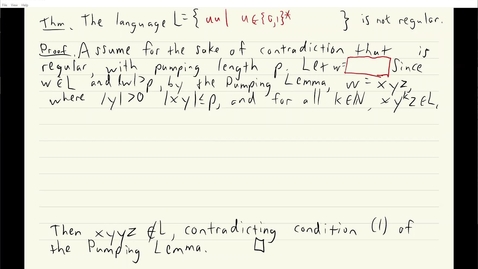 Thm. The language L={ uu | u∈{0,1}* } is not regular.
Proof. Assume for the sake of contradiction that is
regular, with pumping length p. Let w= Since
w∈L and |w|>p, by the Pumping Lemma, w = xyz,
where |y|>0 |xy|≤p, and for all k∈ℕ, xy^kz∈L.
Then xyyz ∉L, contradicting condition (1) of
the Pumping Lemma. □